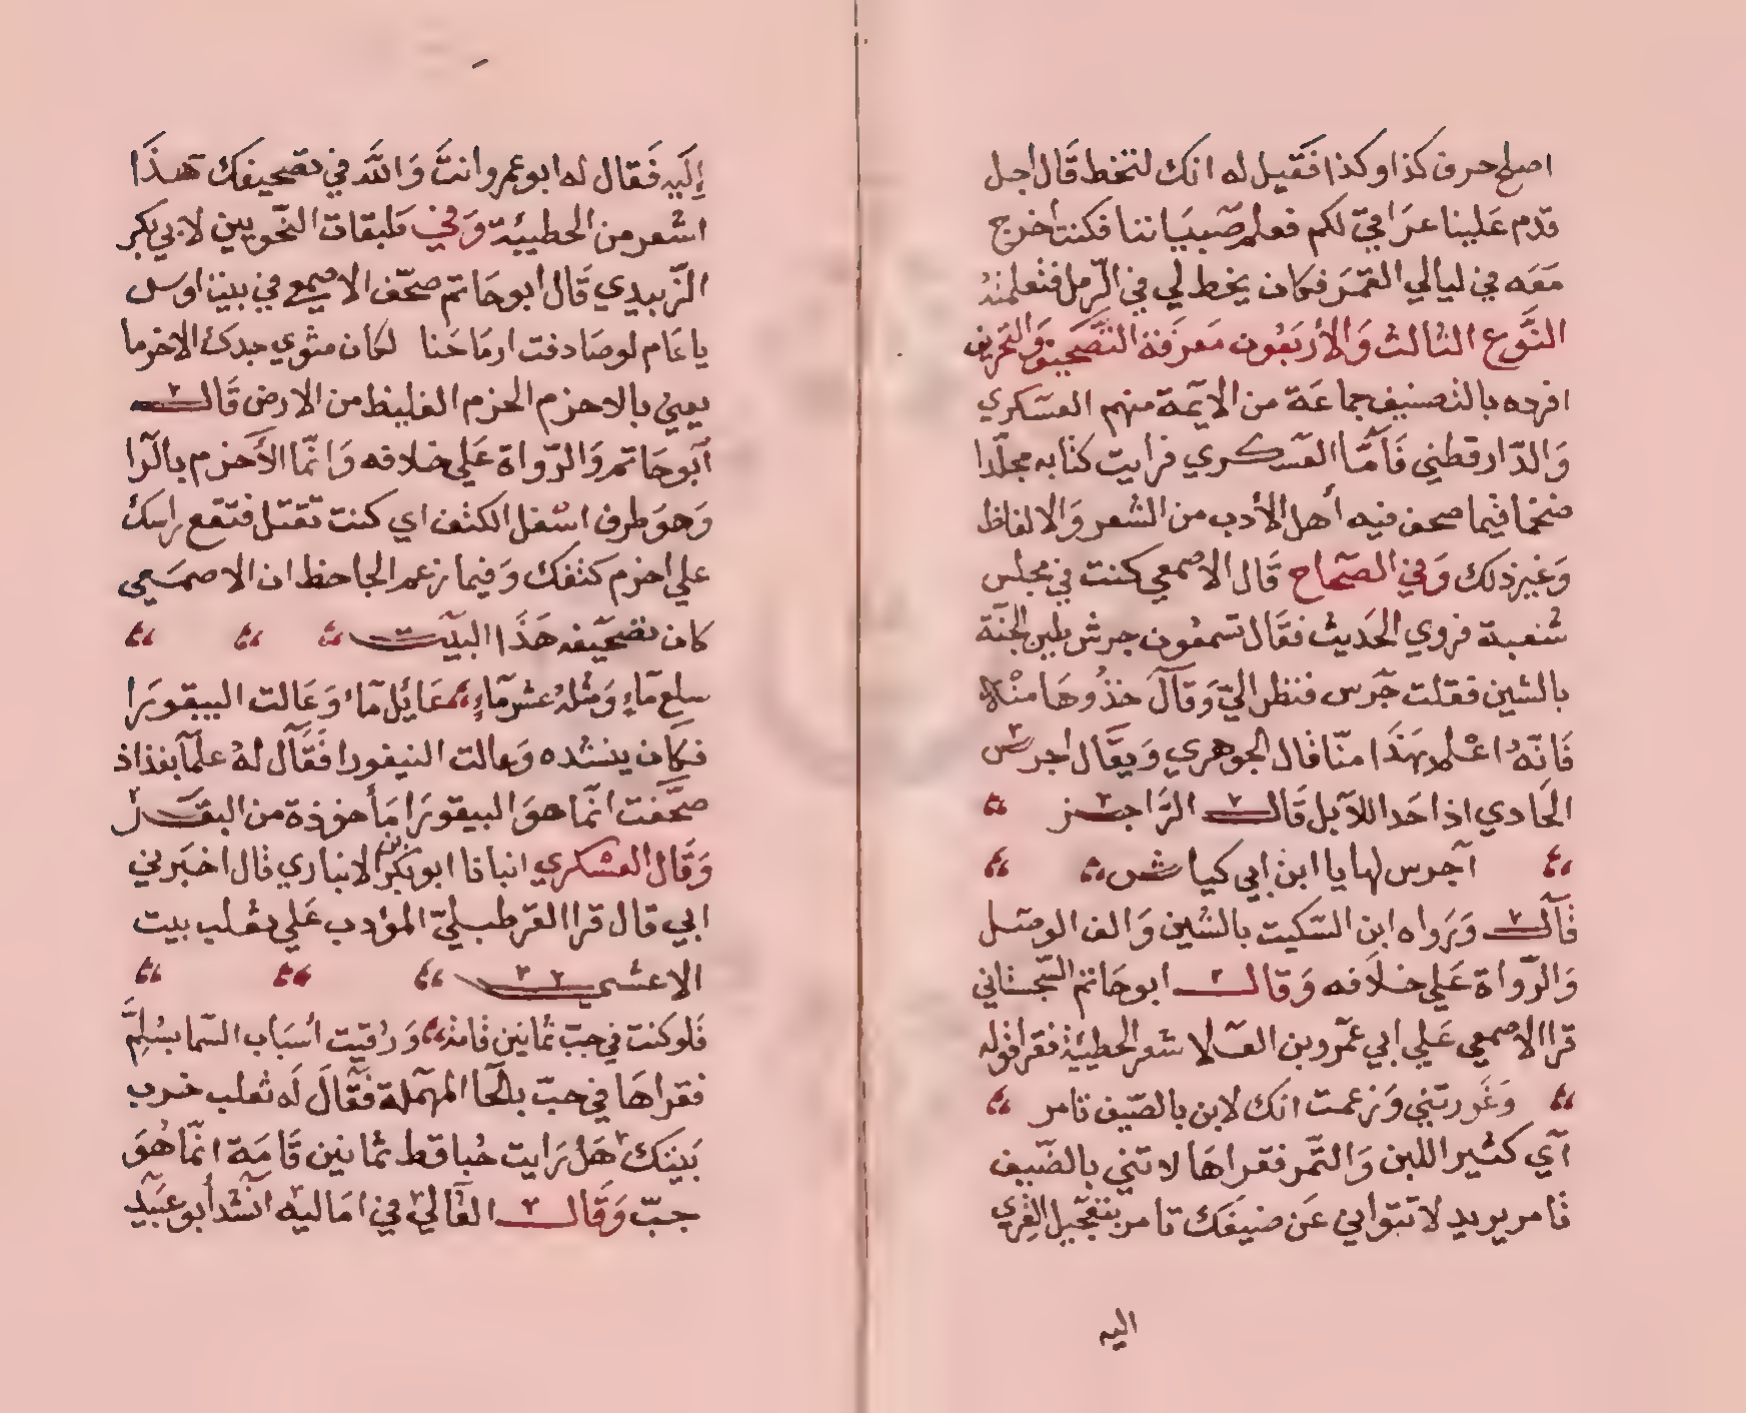 اصلح حرف كذا وكذا فقيل له انك لتخط قال اجل
قدم علينا عراقيّ لكم فعلم صبياننا فكنت أخرج
معه في ليالي القمر فكان يخط لي في الرّمل فتعلمته
النّوع الثالث والأربعون معرفة التصحيف والتحريف
افرده بالتصنيف جماعة من الايمة منهم العسكري
والدّارقطني فأمّا العسكري فرايت كتابه مجلدا
ضخما فيما صحف فيه أهل الأدب من الشعر والالفاظ
وغير ذلك وفي الصحاح قال الاصمعي كنت في مجلس
شعبة فروي الحديث فقال تسمعون جرش طير الجنّة
بالشين فقلت جرس فنظر اليّ وقال خذوها منه
فانّه اعلم بهذا منّا قال الجوهري ويقال اجرش
الحادي اذا حدا للابل قال الرّاجز
آجرس لها يا ابن ابي كياش
قال ورواه ابن السّكيت بالشين والف الوصل
والرّواة علي خلافه وقال ابو حاتم السّجستاني
قرا الاصمعي علي ابي عمرو بن العلا شعر الحطيئة فقرا قوله
وغررتني وزعمت انك لابن بالصّيف تامر
آي كثير اللبن والتّمر فقراها لا تني بالضّيف
تامر يريد لا تتواني عن ضيفك تامر بتعجيل القري
اليه
إليه فقال له ابو عمرو انت والله في تصحيفك هذا
اشعر من الحطيئة وفي طبقات النّحويين لابي بكر
الزّبيدي قال ابو حاتم صحّف الاصمعي في بيت اوس
يا عام لو صادفت ارماحنا لكان مثوي خدك الاخرما
يعني بالاحزم الحزم الغليظ من الارض قال
آبو حاتم والرّواة علي خلافه وانّما الأخرم بالرّا
وهو طرف اسفل الكتف اي كنت تقتل فتقع راسك
علي اخرم كتفك وفيما زعم الجاحظ ان الاصمعي
كان تصحيفه هذا البيت
سلع مآءٍ ومثله عشر مآءٍ عايل مآء وعالت البيقورا
فكان ينشده وعالت النيقورا فقال له علمآ بغداذ
صحّفت انّما هو البيقورا مأخوذة من البقر
وقال العسكري انبانا ابو بكر بن الانباري قال اخبرني
ابي قال قرا القرطبليّ المؤدب علي ثعلب بيت
الاعشي
فلو كنت في حبّ ثمانين قامة ورقيت أسباب السّما بسلّم
فقراها في حبّ بالحا المهملة فقال له ثعلب خرب
بيتك هل رايت حبا قط ثمانين قامة انّما هو
جبّ وقال القالي في اماليه انشد أبو عبيد